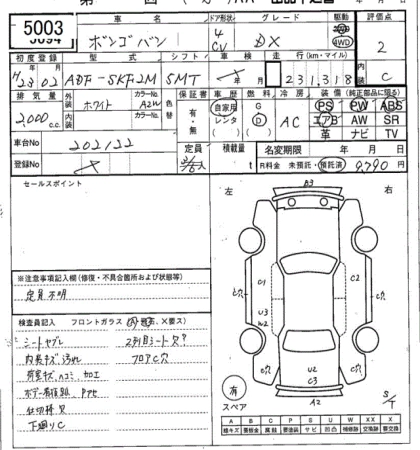 5003
車名 ドア形状 グレード 駆動 評価点
ボンゴバン 4 CV DX 2WD 4WD 2
初度登録 型式 シフト 車検 走行(km・マイル) 内装
H23 02 ADF-SKF2M 5MT 年 月 231,318 C
排気量 外装 カラーNo. 色替 保証書 車歴 燃料 冷房 装備(純正部品に限る)
2,000 c.c. ホワイト A2W 有・無 自家用 レンタ G D AC PS PW ABS
内装 カラーNo. エアB AW SR
革 ナビ TV
車台No 202122 定員 積載量 名変期限 年 月 日
登録No 人 t R料金 未預託・預託済 9,790 円
セールスポイント
※注意事項記入欄(修復・不具合箇所および状態等)
定員不明
検査員記入 フロントガラス
シートヤブレ 2列目シート欠?
内装キズ汚れ フロアC穴
荷室キズ、ヘコミ、加工
仕切棒欠
下廻りC
左 右
A3
C1 C2
U3
W2
U2
C3
A2
C穴 C穴 C穴 C穴
有
スペア
S/T
A B C P S U W X XX
線キズ 要板金 腐食 要塗装 サビ 凹凸 補修跡 交換跡 要交換